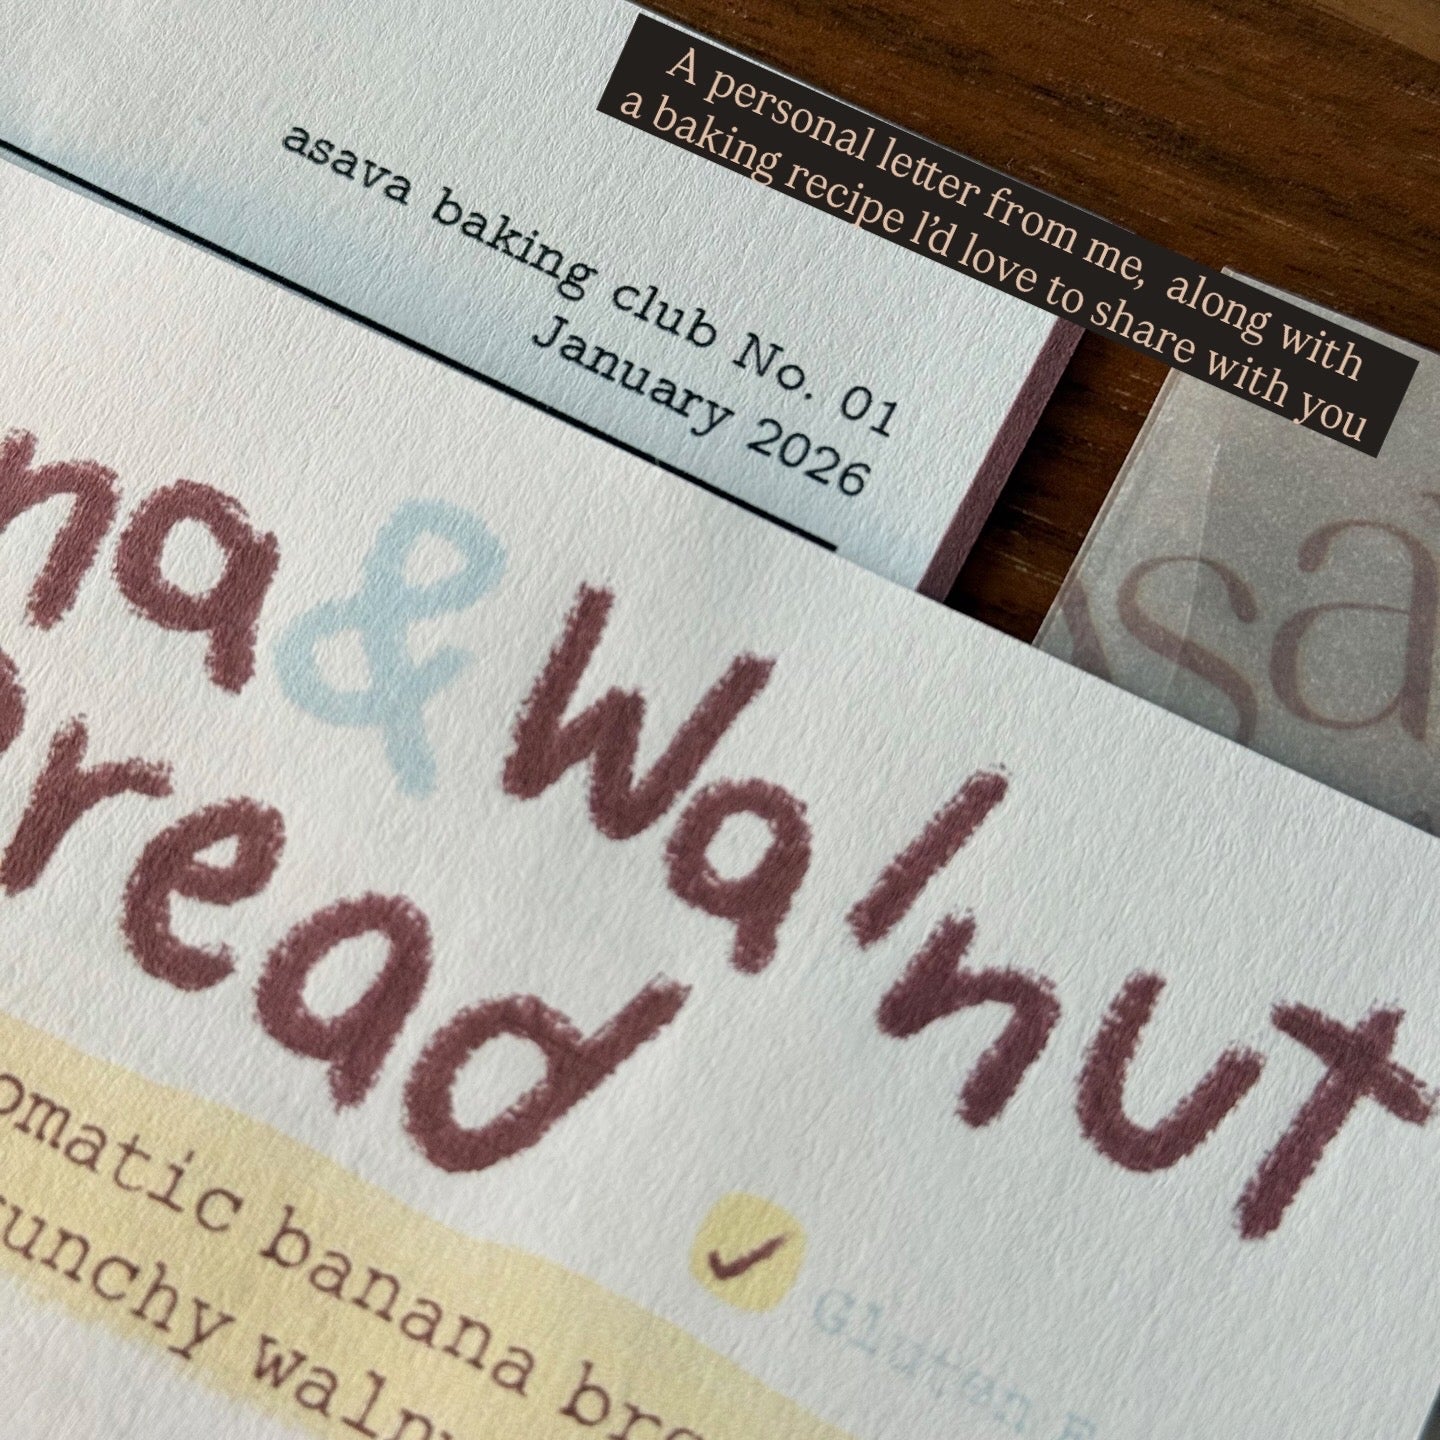 A personal letter from me, along with
a baking recipe I'd love to share with you
asava baking club No. 01
January 2026
na & Walnut
read
omatic banana bre
unchy waln
Gluten F
asa